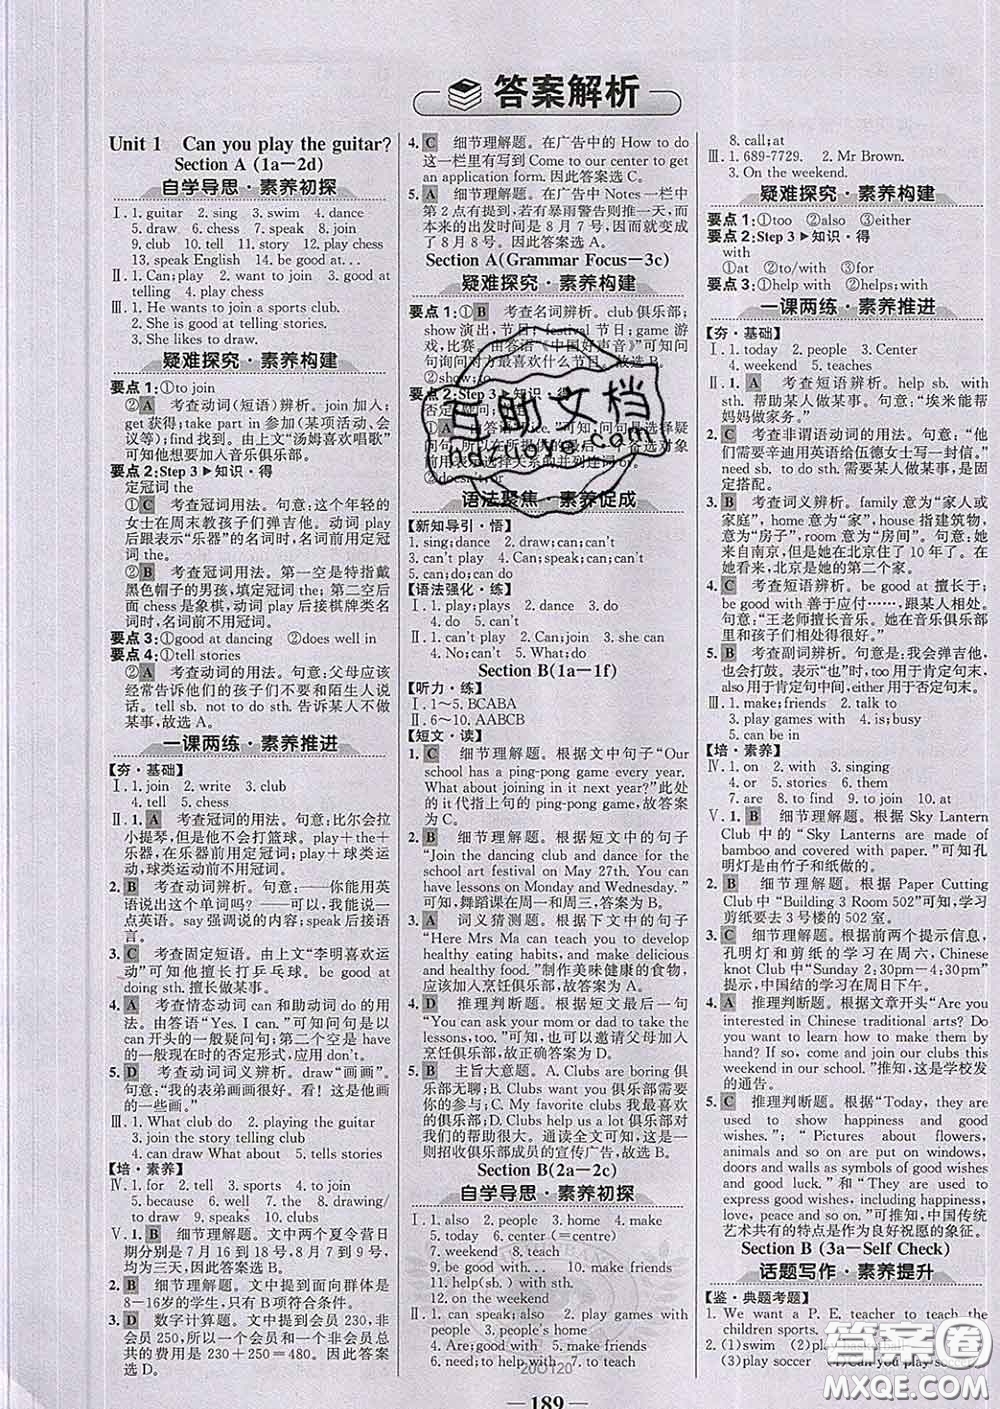 答案解析
Unit 1　Can you play the guitar?
Section A (1a—2d)
自学导思·素养初探
Ⅰ. 1. guitar　2. sing　3. swim　4. dance
5. draw　6. chess　7. speak　8. join
9. club　10. tell　11. story　12. play chess
13. speak English　14. be good at...
Ⅱ. 1. Can; play　2. want to join　3. good at
telling　4. playing chess
Ⅲ. 1. He wants to join a sports club.
2. She is good at telling stories.
3. She likes to draw.
疑难探究·素养构建
要点 1: ①to join
②A　考查动词(短语)辨析。join 加入;
get 获得; take part in 参加(某项活动、会
议等); find 找到。由上文“汤姆喜欢唱歌”
可知他想要加入音乐俱乐部。
要点 2: Step 3 ▶知识·得
定冠词 the
①C　考查冠词用法。句意: 这个年轻的
女士在周末教孩子们弹吉他。动词 play
后跟表示“乐器”的名词时, 名词前用定冠
词 the。
②B　考查冠词用法。第一空是特指戴
黑色帽子的男孩, 填定冠词 the; 第二空后
面 chess 是象棋, 动词 play 后接棋牌类名
词时, 名词前不用冠词。
要点 3: ①good at dancing　②does well in
要点 4: ①tell stories
②A　考查动词的用法。句意: 父母应该
经常告诉他们的孩子们不要在街上踢足
球。tell sb. not to do sth. 告诉某人不做
某事, 故选 A。
一课两练·素养推进
【夯·基础】
Ⅰ. 1. join　2. write　3. club
4. tell　5. chess
Ⅱ. 1. A　考查冠词的用法。句意: 比尔会拉
小提琴, 但是他不会打篮球。play+the+
乐器, 在乐器前用定冠词; play+球类运
动, 球类运动前不用冠词。
2. B　考查动词辨析。句意: ——你能用英
语说出这个单词吗? ——可以, 我能说一
点英语。say 强调说的内容; speak 后接语
言。
3. C　考查固定短语。由上文“李明喜欢运
动”可知他擅长打乒乓球。be good at
doing sth. 擅长做某事。
4. A　考查情态动词 can 和助动词 do 的用
法。由答语“Yes, I can.”可知问句是以
can 开头的一般疑问句; 第二个空是 have
to 在一般现在时的否定形式, 应用 don't。
5. D　考查动词词义辨析。draw“画画”。
句意:“我的表弟画画很好。看! 这是他画
的一些画。”
Ⅲ. 1. What club do　2. playing the guitar
3. join the story telling club
4. can draw What about　5. tells stories
【培·素养】
Ⅳ. 1. for　2. tell　3. speaks　4. stories
5. because　6. well　7. the　8. drawing/
to draw　9. speaks　10. clubs
Ⅴ. 1. B　细节理解题。文中两个夏令营日
期分别是 7 月 16 到 18 号, 8 月 7 到 9 号,
均为三天, 因此答案选 B。
2. B　细节理解题。文中提到面向群体是
8—16岁的学生, 只有 B 项符合条件。
3. D　数字计算题。文中提到会员 230, 非
会员 250, 所以一个会员和一个非会员
总共的费用是 230+250=480。因此答案
选 D。
4. C　细节理解题。在广告中的 How to do
这一栏里有写到 Come to our center to get
an application form. 因此答案选 C。
5. A　细节理解题。在广告中 Notes 一栏中
第 2 点有提到, 若有暴雨警告则推一天, 而
本来的出发时间是 8 月 7 号, 因此就变成
了 8 月 8 号。因此答案选 A。
Section A(Grammar Focus—3c)
疑难探究·素养构建
要点 1: ①B　考查名词辨析。club 俱乐部;
show 演出, 节目; festival 节日; game 游
戏, 比赛。由答语《中国好声音》可知问
句询问对方最喜欢什么节目。故选 B。
②show; to
要点 2: Step 3 ▶知识·得
否定; 疑问; or
①A
②doesn't; or
语法聚焦·素养促成
【新知导引·悟】
1. sing; dance　2. draw; can; can't
3. can't play　4. Can; speak; can; can't
5. can; do; can; do
【语法强化·练】
Ⅰ. 1. play; plays　2. dance　3. do
4. do　5. can't
Ⅱ. 1. can't play　2. Can; draw　3. she can
4. No; can't　5. What; do
Section B(1a—1f)
【听力·练】
Ⅰ. 1~5. BCABA
Ⅱ. 6~10. AABCB
【短文·读】
1. C　细节理解题。根据文中句子“Our
school has a ping-pong game every year.
What about joining in it next year?”此处
的 it 代指上句的 ping-pong game, 故答案
为 C。
2. B　细节理解题。根据短文中的句子
“Join the dancing club and dance for the
school art festival on May 27th. You can
have lessons on Monday and Wednesday.”
可知, 舞蹈课在周一和周三, 答案为 B。
3. A　词义猜测题。根据下文中的句子
“Here Mrs Ma can teach you to develop
healthy eating habits, and make delicious
and healthy food.”制作美味健康的食物,
应该加入烹饪俱乐部, 故答案为 A。
4. D　推理判断题。根据短文最后一句
“You can ask your mom or dad to take the
lessons, too.”可知, 也可以邀请父母加入
烹饪俱乐部, 故答案为 D。
5. B　主旨大意题。A. Clubs are boring 俱
乐部无聊; B. Clubs want you 俱乐部需要
你的参与; C. My favorite clubs 我最喜欢
的俱乐部; D. Clubs help us a lot 俱乐部对
我们的帮助很大。通读全文可知, 这是一
则招收俱乐部成员的宣传广告, 故选 B。
Section B(2a—2c)
自学导思·素养初探
Ⅰ. 1. also　2. people　3. home　4. make
5. today　6. center (=centre)
7. weekend　8. teach
9. be good with...　10. make friends
11. help(sb.) with sth.
12. on the weekend
Ⅱ. 1. can speak; also　2. play games with
people　3. today　4. make friends
4. Are; good with　5. on the weekend
6. need; to help with　7. to teach music
8. call; at
Ⅲ. 1. 689-7729.　2. Mr Brown.
3. On the weekend.
疑难探究·素养构建
要点 1: ①too　②also　③either
要点 2: Step 3 ▶知识·得
with
①at　②to/with　③for
要点 3: ①help with　②helps; with
一课两练·素养推进
【夯·基础】
Ⅰ. 1. today　2. people　3. Center
4. weekend　5. teaches
Ⅱ. 1. A　考查短语辨析。help sb. with
sth. 帮助某人做某事。句意:“埃米能帮
妈妈做家务。”
2. C　考查非谓语动词的用法。句意:“他
们需要辛迪用英语给伍德女士写一封信。”
need sb. to do sth. 需要某人做某事, 是固
定搭配。
3. B　考查词义辨析。family 意为“家人或
家庭”, home 意为“家”, house 指建筑物,
意为“房子”, room 意为“房间”。句意: 她
来自南京, 但是她在北京住了 10 年了。在
她看来, 北京是她的第二个家。
4. C　考查短语辨析。be good at 擅长于;
be good with 善于应付……, 跟某人相处。
句意:“王老师擅长音乐。她在音乐俱乐部
里和学生们相处得很好。”
5. B　考查副词辨析。句意: 是。我会弹吉他,
也会打鼓。表示“也”时, too 用于肯定句末,
also 用于肯定句中间, either 用于否定句末。
Ⅲ. 1. make; friends　2. talk to
3. play games with　4. is; busy
5. can be in
【培·素养】
Ⅳ. 1. on　2. with　3. singing
4. or　5. stories　6. them
7. are　8. to find　9. join　10. at
Ⅴ. 1. B　细节理解题。根据 Sky Lantern
Club 中的“Sky Lanterns are made of
bamboo and covered with paper.”可知孔
明灯是由竹子和纸做的。
2. B　细节理解题。根据 Paper Cutting
Club 中“Building 3 Room 502”可知, 学习
剪纸要去 3 号楼的 502 室。
3. C　细节理解题。根据前两个提示信息,
孔明灯和剪纸的学习在周六, Chinese
knot Club 中“Sunday 2:30pm—4:30pm”
提示, 中国结的学习在周日下午。
4. A　推理判断题。根据文章开头“Are you
interested in Chinese traditional arts? Do
you want to learn how to make them by
hand? If so, come and join our clubs this
weekend in our school.”推知, 这是学校发
的通告。
5. C　推理判断题。根据“Today, they are
used to show happiness and good
wishes.”; “Pictures about flowers,
animals or birds are put on windows,
doors and walls as symbols of good wishes
and good luck.” 和 “They are used to
express good wishes, including happiness,
love, peace and so on.”可推知, 中国传统
艺术共有的特点是作为良好祝愿的象征。
Section B (3a—Self Check)
话题写作·素养提升
【鉴·典题考题】
1. We want a P. E. teacher to teach the
children sports.
2. (1)swim　(2)play
(3)play soccer　(4)Can you play
— 189 —
200120
互助文档
hdzuoye.com
答案圈
MXQE.COM